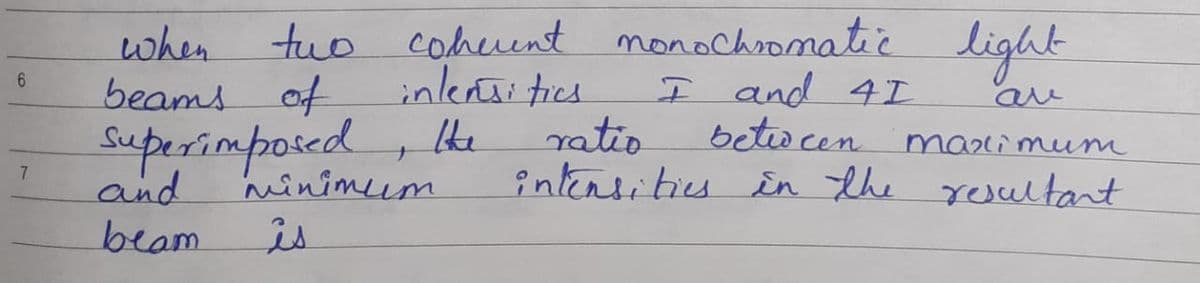 when two coherent monochromatic light
6 beams of intensities I and 4I are
superimposed, the ratio between maximum
7 and minimum intensities in the resultant
beam is